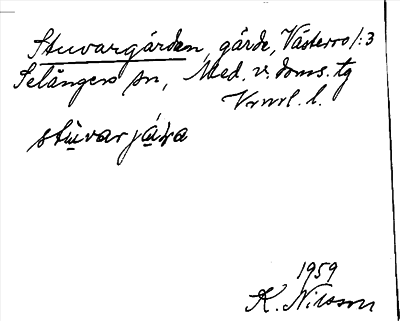 Stuvargården, gärde, Västerro 1:3
Selångers sn, Med. v. doms. tg
Vnrl. l.
1959
K. Nilsson